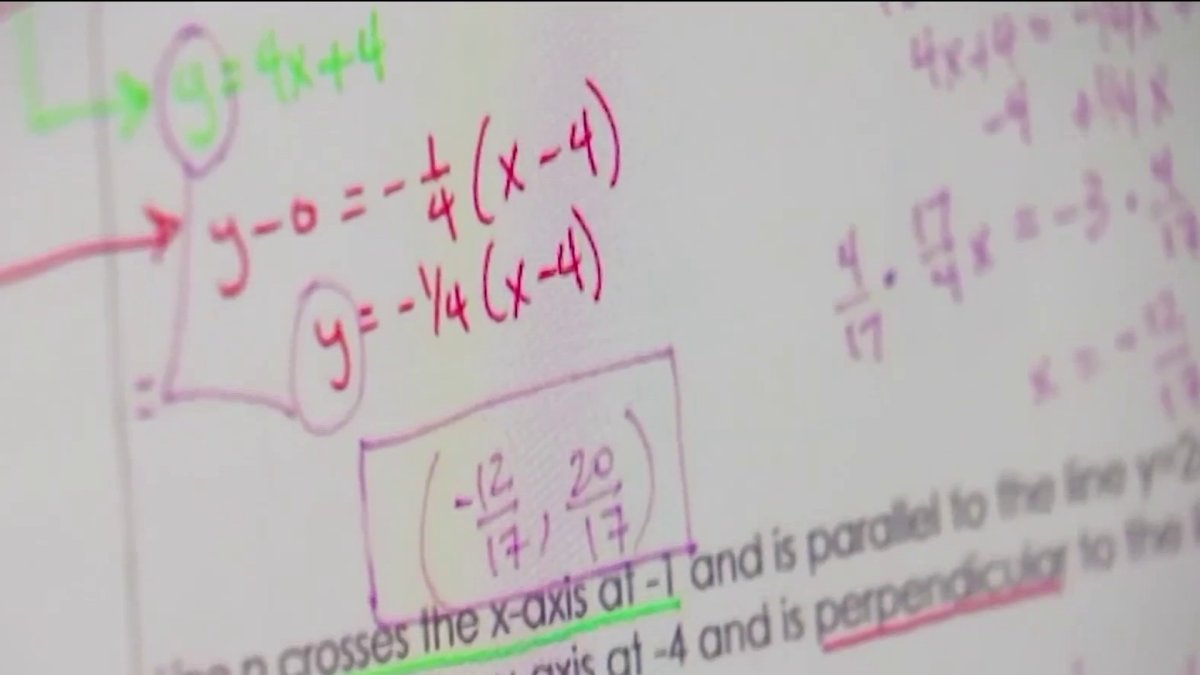 y = 4x+4
y-0 = -1/4 (x-4)
y = -1/4 (x-4)
(-12/17, 20/17)
4x+4 =
-4
4/17 · 17/4 x = -3 · 4/17
x = -12/17
crosses the x-axis at -1 and is parallel to the line y=2
axis at -4 and is perpendicular to the